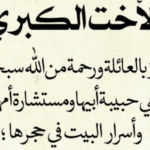 لأخت الكبرى
بالعائلة ورحمة من الله
ي حبيبة أبيها ومستشارة
وأسرار البيت في حجرها ؛